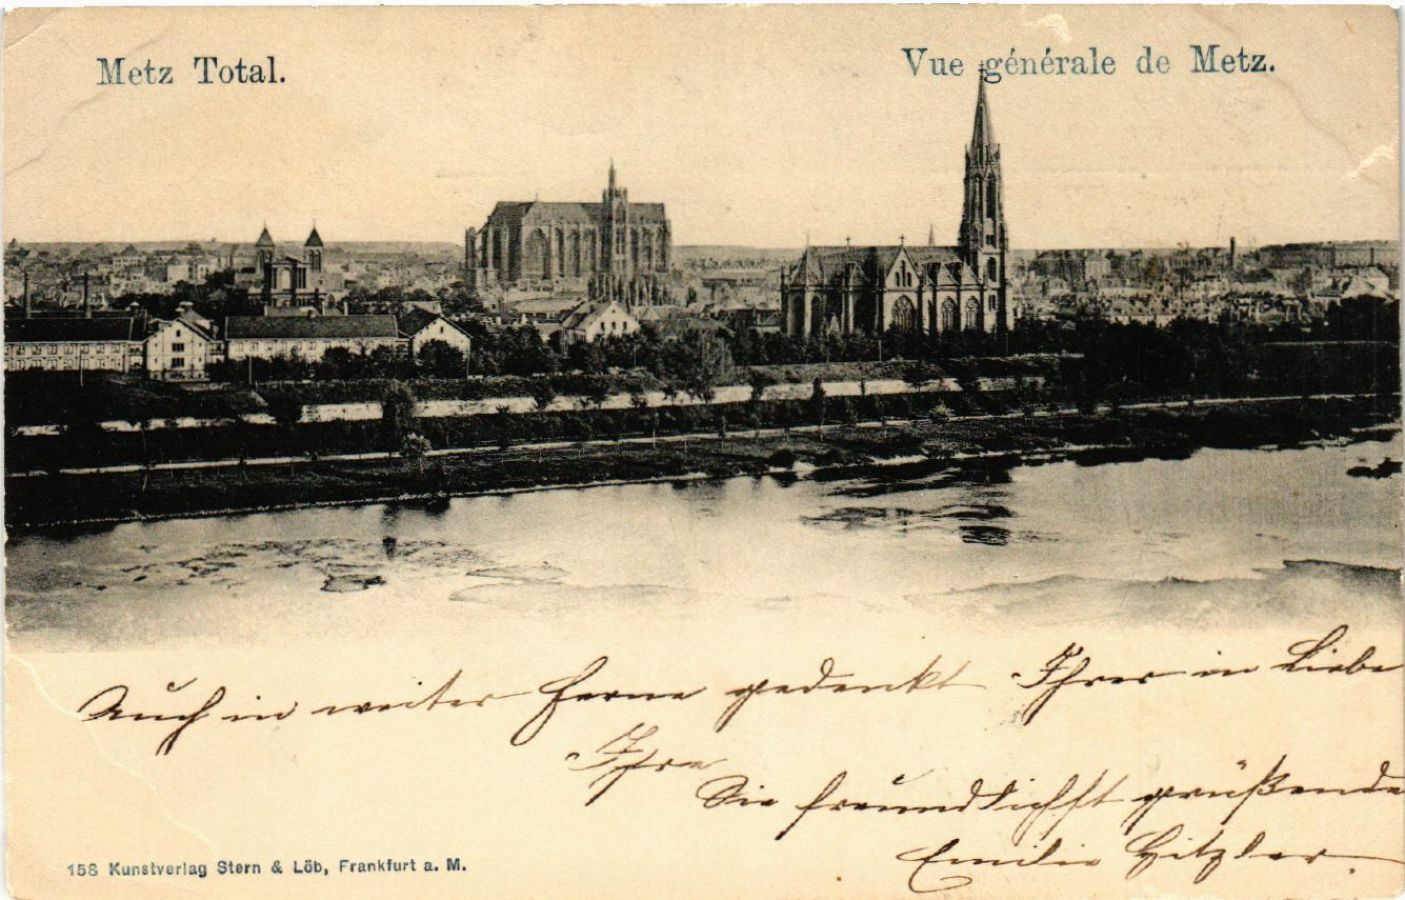 Metz Total.
Vue générale de Metz.
Auch in weiter Ferne gedenkt Ihrer in Liebe
Ihre
Sie freundlichst grüßende
Emilie Hitzler.
158 Kunstverlag Stern & Löb, Frankfurt a. M.